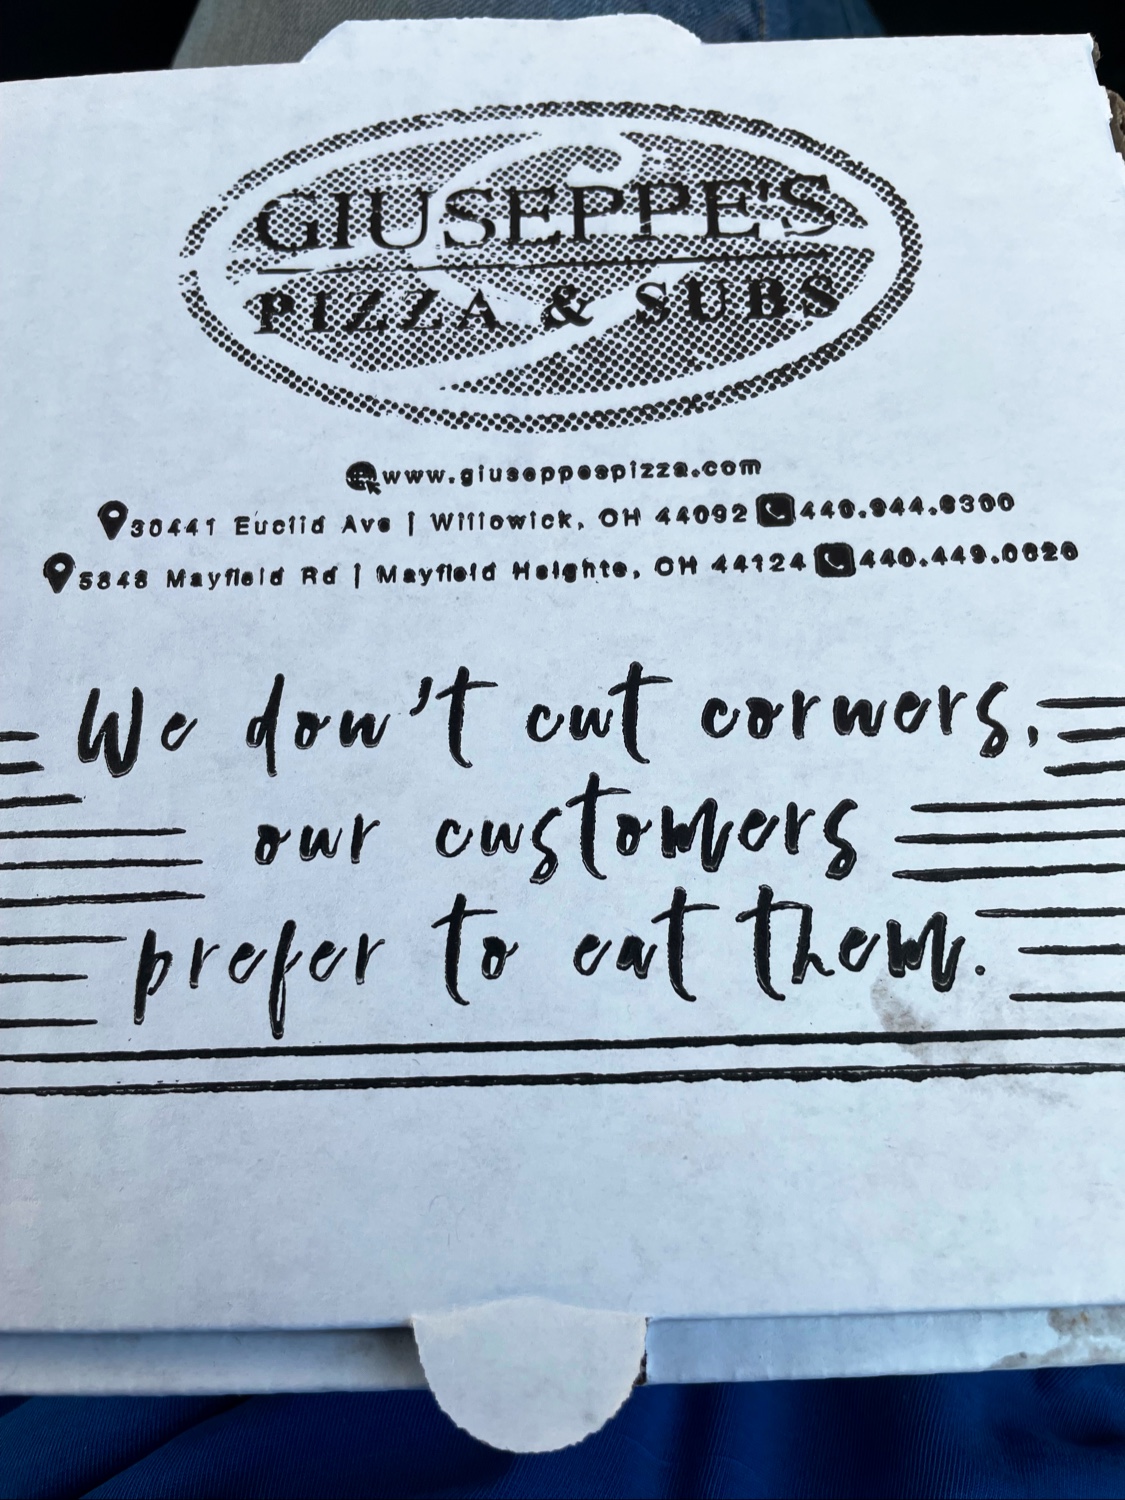 GIUSEPPE'S
PIZZA & SUBS
www.giuseppespizza.com
30441 Euclid Ave | Willowick, OH 44092 440.944.6300
5848 Mayfield Rd | Mayfield Heights, OH 44124
We don't cut corners,
our customers
prefer to eat them.